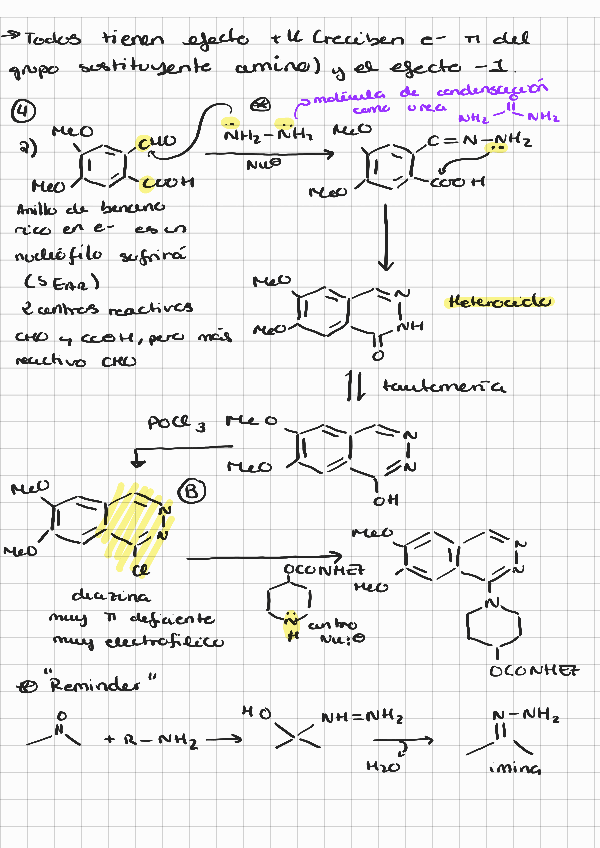 → Todos tienen efecto +K (reciben e- π del
grupo sustituyente amino) y el efecto -I.
④
2)
MeO
MeO
CHO
COOH
NH2-NH2
Nu⊖
molécula de condensación
como urea
NH2 O NH2
MeO
MeO
C=N-NH2
COOH
Anillo de benceno
rico en e- es un
nucleófilo sufrirá
(SEAR)
2 centros reactivos
CHO y COOH, pero más
reactivo CHO
MeO
MeO
N
NH
O
Heterociclo
tautomería
POCl3
MeO
MeO
N
N
OH
MeO
MeO
N
N
Cl
B
diazina
muy π deficiente
muy electrofílico
OCONHEt
N
H
centro
Nu:⊖
MeO
MeO
N
N
N
OCONHEt
"Reminder"
O
+ R-NH2
HO
NH=NH2
H2O
N-NH2
imina